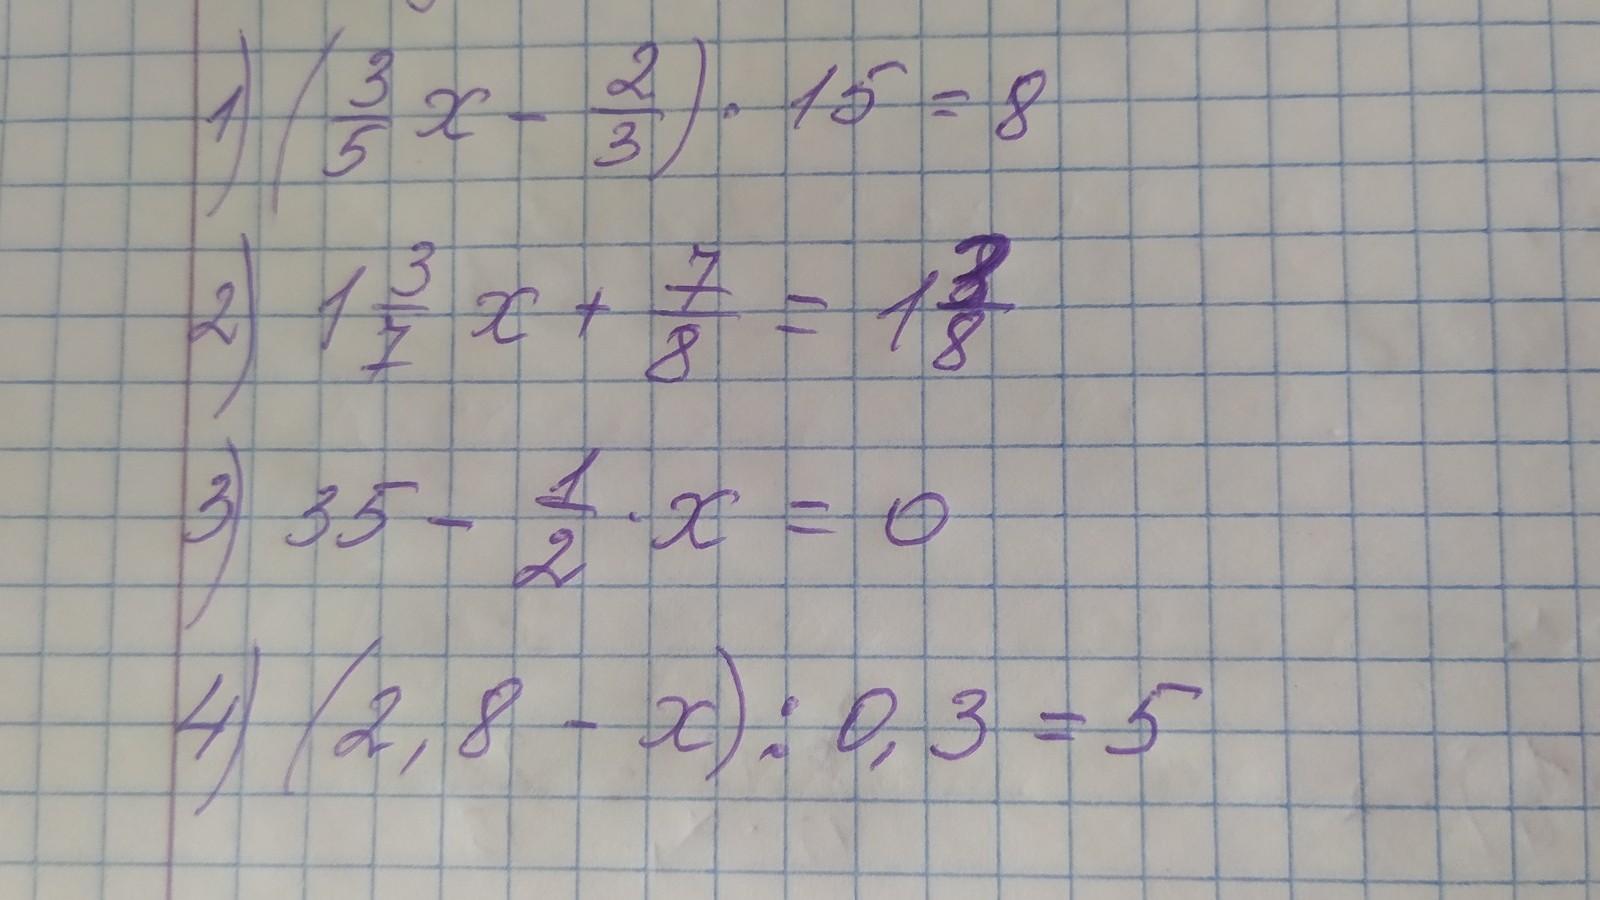 1) (3/5 x - 2/3) · 15 = 8
2) 1 3/7 x + 7/8 = 1 3/8
3) 35 - 1/2 · x = 0
4) (2,8 - x) : 0,3 = 5